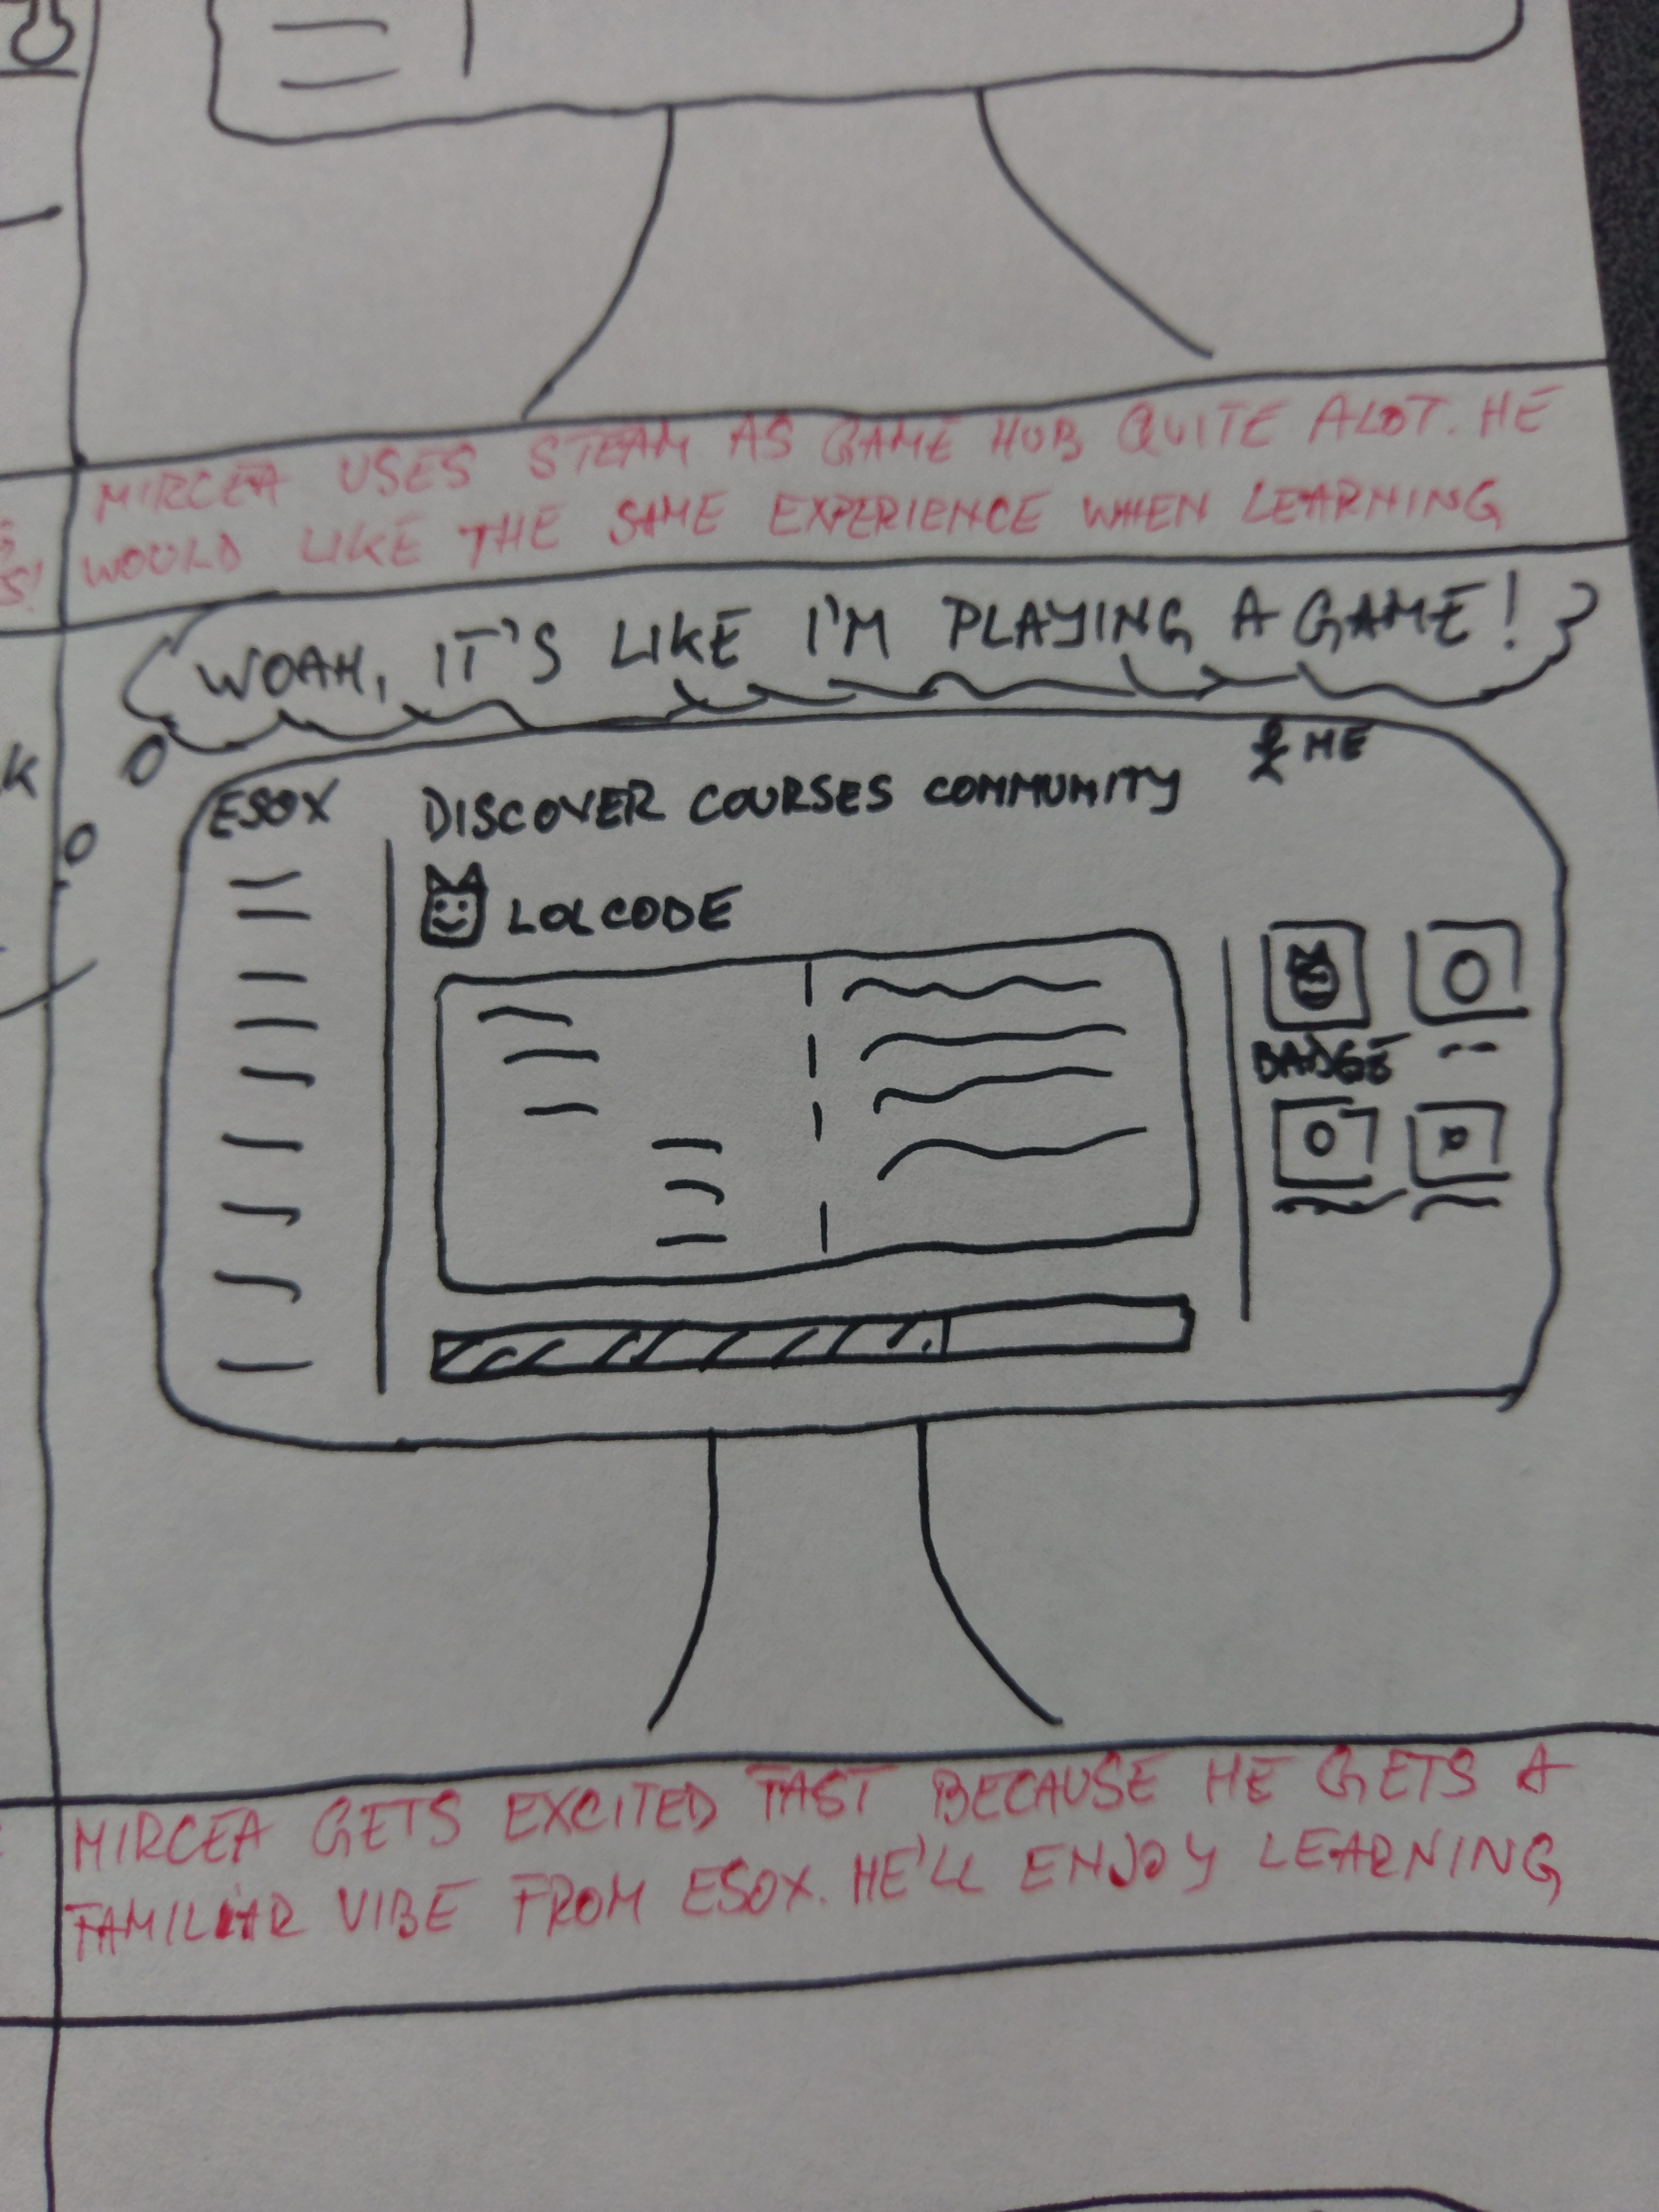 MIRCEA USES STEAM AS GAME HUB QUITE ALOT. HE
S! WOULD LIKE THE SAME EXPERIENCE WHEN LEARNING
WOAH, IT'S LIKE I'M PLAYING A GAME!
K
ESOX DISCOVER COURSES COMMUNITY ME
LOLCODE
BADGE
MIRCEA GETS EXCITED FAST BECAUSE HE GETS A
FAMILIAR VIBE FROM ESOX. HE'LL ENJOY LEARNING